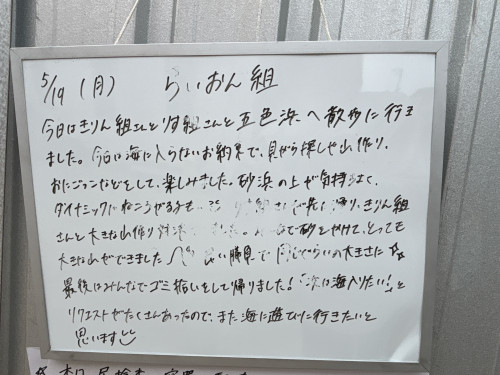 5/19 (月) らいおん組
今日はきりん組さんとりす組さんと五色浜へ散歩に行き
ました。今日は海に入らないお約束で、貝がら探しや山作り、
おにごっこなどをして、楽しみました。砂浜の上が気持ちよく、
ダイナミックにねころがる子も 先に帰り、きりん組
さんと大きな山作り対決 した。 で砂をかけて、とっても
大きな山ができました 勝負で同じくらいの大きさに☆
最後はみんなでゴミ拾いをして帰りました!「次は海入りたい!」と
リクエストがたくさんあったので、また海に遊びに行きたいと
思います